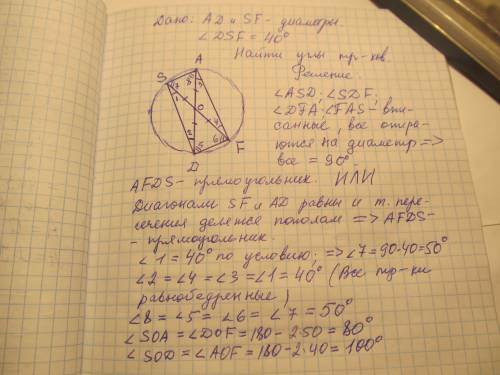 Дано: AD и SF - диаметры.
∠DSF = 40°
Найти углы тр-ков.
Решение.
S
A
O
D
F
7
8
1
3
2
5
4
6
∠ASD; ∠SDF;
∠DFA; ∠FAS - впи-
санные, все опира-
ются на диаметр =>
все = 90°
AFDS - прямоугольник. ИЛИ
Диагонали SF и AD равны и т. пере-
сечения делятся пополам => AFDS-
- прямоугольник.
∠1 = 40° по условию; => ∠7 = 90-40=50°
∠2 = ∠4 = ∠3 = ∠1 = 40° (Все тр-ки
равнобедренные)
∠8 = ∠5 = ∠6 = ∠7 = 50°
∠SOA = ∠DOF = 180 - 2·50 = 80°
∠SOD = ∠AOF = 180 - 2·40 = 100°